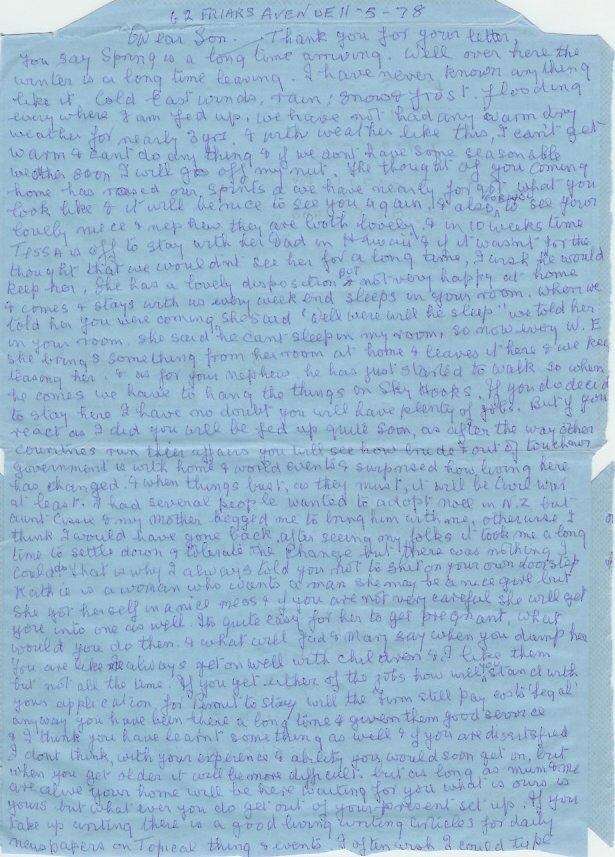 62 FRIARS AVENUE 11-5-78
Dear Son. Thank you for your letter,
You say Spring is a long time arriving. Well over here the
winter is a long time leaving. I have never known any thing
like it Cold East winds, rain, snow & frost. flooding
everywhere I am fed up, we have not had any warm dry
weather for nearly 3 yrs. & with weather like this, I can't get
warm & cant do any thing & if we dont have some seasonable
weather soon I will go off my nut. The thought of you coming
home has raised our spirits & we have nearly forgot what you
look like & it will be nice to see you again & also for you to see your
lovely niece & nephew they are both lovely, & in 10 weeks time
TESSA is off to stay with her Dad in Hawaii & if it wasn't for the
thought that we wouldnt see her for a long time, I wish he would
keep her, She has a lovely disposition but is not very happy at home
& comes & stays with us every week end sleeps in your room. when we
told her you were coming she said "well were will he sleep" we told her
in your room. she said he cant sleep in my room, so now every W.E
she brings something from her room at home & leaves it here & we keep
teasing her. & as for your nephew. he has just started to walk so when
he comes we have to hang the things on Sky Hooks. If you do decide
to stay here I have no doubt you will have plenty of jobs. But if you
react as I did you will be fed up quite soon, as after the way other
countries run their affairs you will see how crude & out of touch our
government is with home & world events & surprised how living here
has changed. & when things bust, as they must, it will be Civil war
at least. I had several people wanted to adopt in N.Z but
aunt Cissie & my mother begged me to bring him with me, otherwise I
think I would have gone back, after seeing my folks it took me a long
time to settle down & tolerate the change but there was nothing I
could do that is why I always told you not to shit on your own doorstep
Kathie is a woman who wants a man she may be a nice girl but
she got herself in a nice mess & if you are not very careful she will get
you into one as well. Its quite easy for her to get pregnant, what
would you do then. & what will & Mary say when you dump her
You are like me always get on well with children & I like them
but not all the time. If you get either of the jobs how will you stand with
your application, for Permit to stay will the Firm still pay costs legal
anyway you have been there a long time & given them good service
& I think you have learnt something as well & if you are dissatisfied
I dont think, with your experience & ability you would soon get on, but
when you get older it will be more difficult. but as long as mum & me
are alive your home will be here waiting for you what is ours is
yours but what ever you do get out of your present set up. If you
take up writing there is a good living writing articles for daily
newspapers on Topical thing & events I often wish I could type